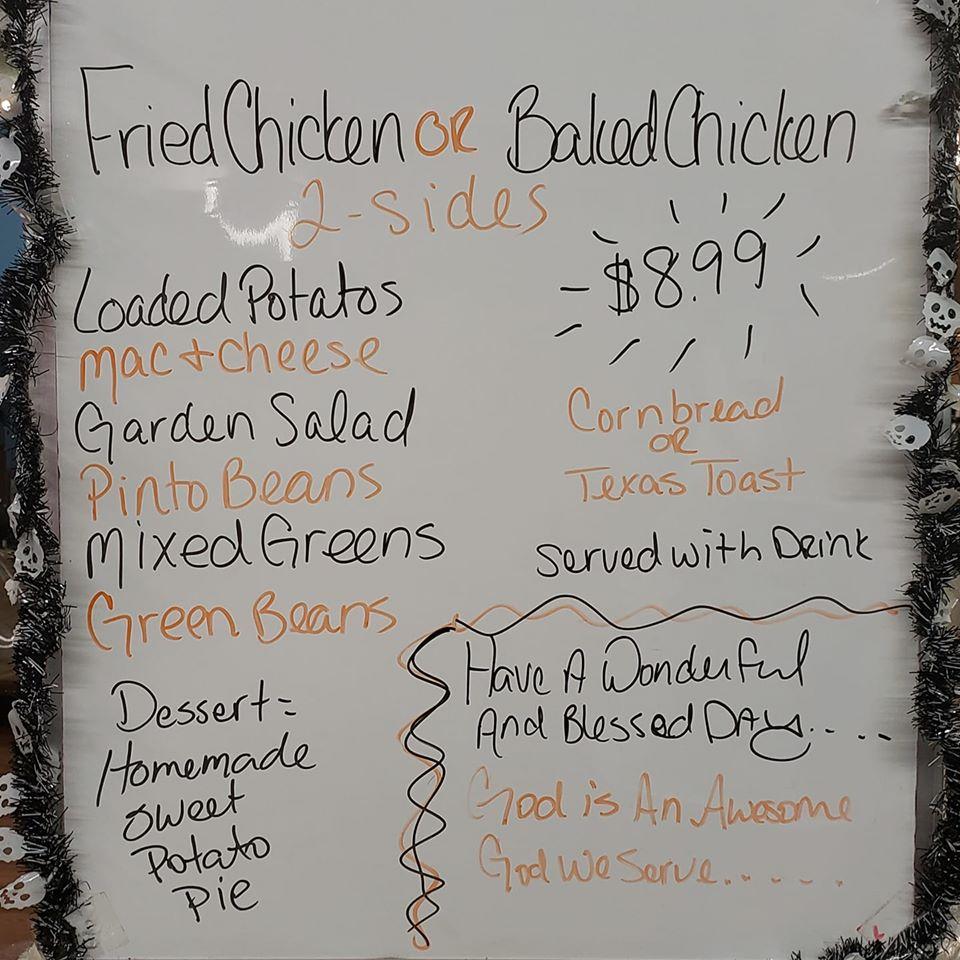 Fried Chicken OR Baked Chicken
2-sides
$8.99
Loaded Potatos
Mac + Cheese
Garden Salad
Pinto Beans
Mixed Greens
Green Beans
Cornbread
OR
Texas Toast
Served with Drink
Dessert=
Homemade
Sweet
Potato
Pie
Have A Wonderful
And Blessed DAy....
God is An Awesome
God We Serve.....